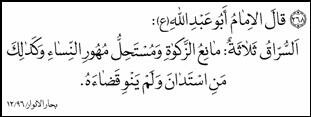 (٢٦٨) قَالَ الإِمَامُ أَبُو عَبْدِ اللهِ (ع):
اَلسُّرَّاقُ ثَلَاثَةٌ: مَانِعُ الزَّكٰوةِ وَمُسْتَحِلُّ مُهُورِ النِّسَاءِ وَكَذَالِكَ
مَنِ اسْتَدَانَ وَلَمْ يَنْوِ قَضَاءَهُ.
بحار الانوار ١٢/٩٦